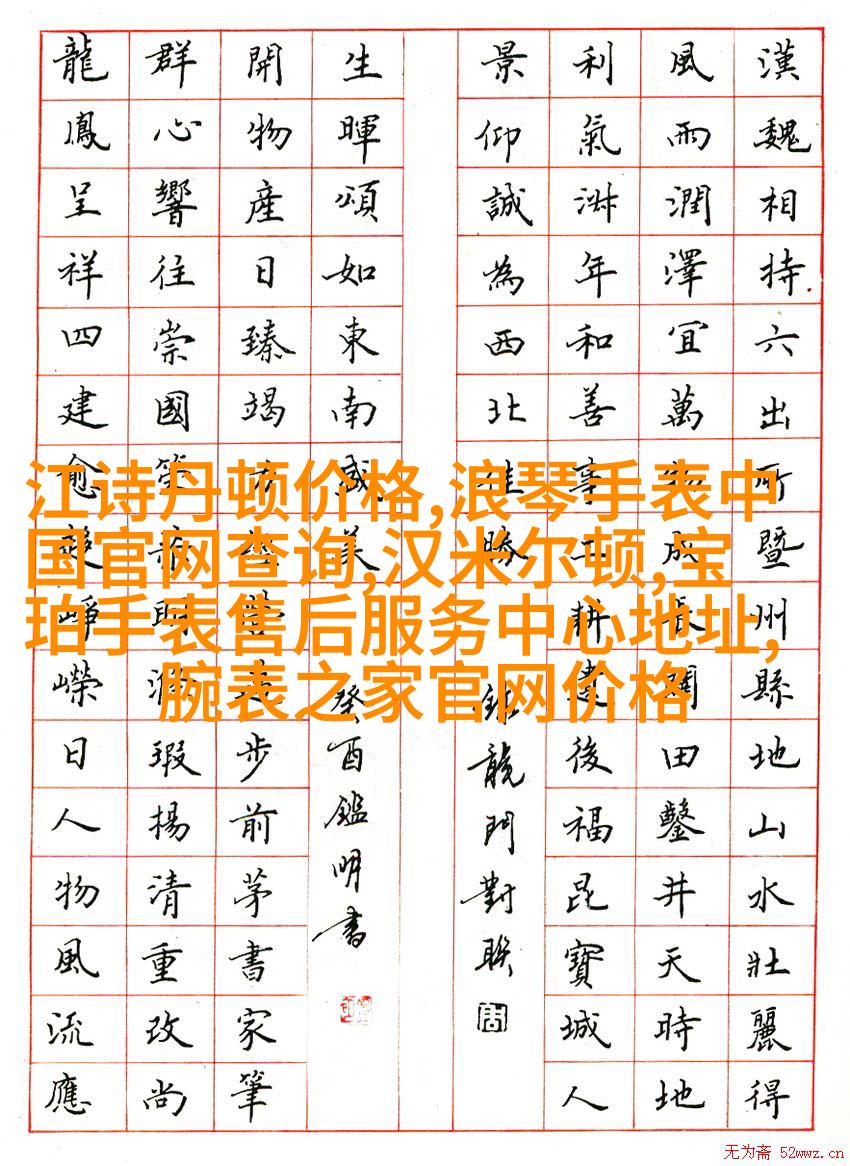 漢魏相持六出所暨州縣地山水壯麗得
風雨潤澤宜萬物成長闢田鑿井天時地
利氣淋年和善事工耕建後福昆寶城人
景仰誠為西北勝
龍門對聯
生暉頌如東南盛美
癸酉鑑明書
開物產日臻竭步前茅書家筆
群心響往崇國瑕揚清重改尚
龍鳳呈祥四建愈趨崢嶸日人物風流應
江诗丹顿价格,浪琴手表中
国官网查询,汉米尔顿,宝
珀手表售后服务中心地址,
腕表之家官网价格
无为斋 52wwz.cn